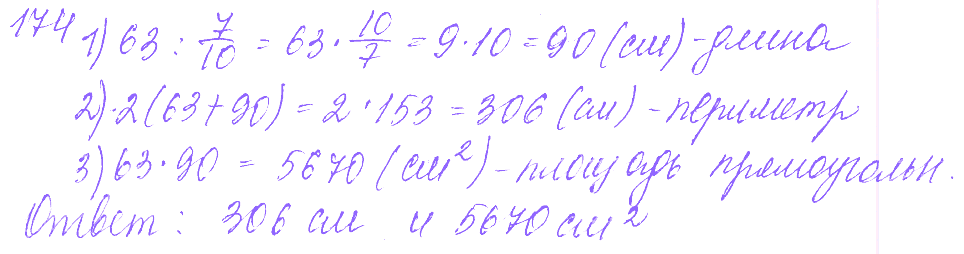 174 1) 63 : 7/10 = 63 · 10/7 = 9 · 10 = 90 (см) - длина
2) · 2 (63 + 90) = 2 · 153 = 306 (см) - периметр
3) 63 · 90 = 5670 (см²) - площадь прямоугольн.
Ответ : 306 см и 5670 см²